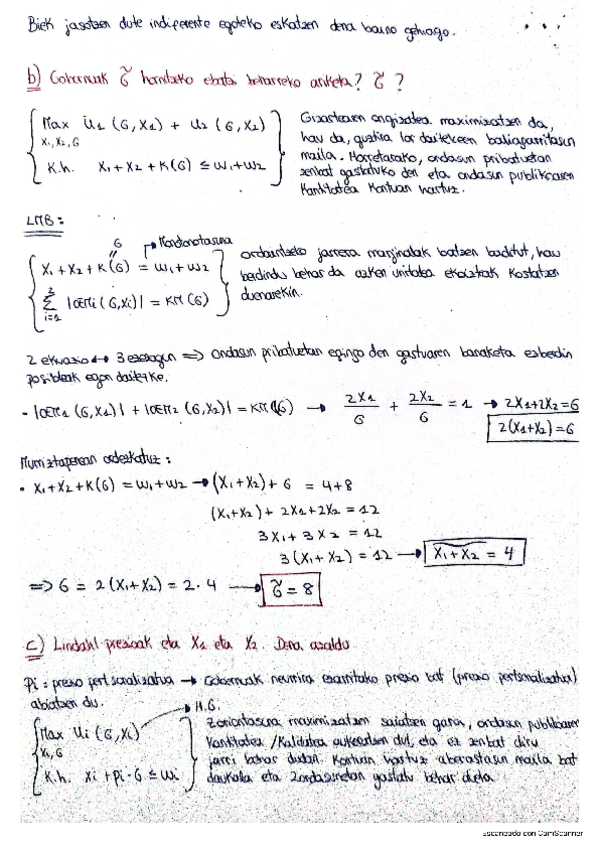 Biek jasotzen dute indiferente egoteko eskatzen dena baino gehiago.
b) Gobernuak G̃ hornitzeko ebatzi beharreko ariketa? G̃?
Max U1 (G, X1) + U2 (G, X2)
X1, X2, G
K.h. X1 + X2 + K(G) ≤ W1 + W2
Gizartearen ongizatea maximizatzen da,
hau da, guztira lor daitekeen baliagarritasun
maila. Horretarako, ondasun pribatuetan
zenbat gastatuko den eta ondasun publikoaren
kantitatea kontuan hartuz.
LMB:
G
Monotonotasuna
X1 + X2 + K(G) = W1 + W2
2
Σ |OEMi (G, Xi)| = KM (G)
i=1
ordaintzeko jarrera marjinalak batzen baditut, hau
berdindu behar da azken unitatea ekoizteak kostatzen
duenarekin.
2 ekuazio ↔ 3 ezezagun ⇒ Ondasun pribatuetan egingo den gastuaren banaketa ezberdin
posibleak egon daitezke.
- |OEM1 (G, X1)| + |OEM2 (G, X2)| = KM (G) → 2X1/G + 2X2/G = 1 → 2X1+2X2=G
2(X1+X2)=G
Murriztapenean ordezkatuz:
• X1 + X2 + K(G) = W1 + W2 → (X1+X2) + G = 4+8
(X1+X2) + 2X1+2X2 = 12
3X1 + 3X2 = 12
3(X1+X2) = 12 → X1+X2 = 4
⇒ G = 2(X1+X2) = 2·4 → G̃ = 8
c) Lindahl prezioak eta X1 eta X2. Dena azaldu
Pi = prezio pertsonalizatua → Gobernuak neurrira ezarritako prezio bat (prezio pertsonalizatua)
abiatzen du.
H.G.
Max Ui (G, Xi)
Xi, G
K.h. Xi + Pi·G ≤ Wi
Zoriontasuna maximizatzen saiatzen gara, ondasun publikoaren
kantitatea / kalitatea aukeratzen dut, eta ez zenbat diru
jarri behar dudan. Kontuan hartuz aberastasun maila bat
daukala eta 2 ondasunetan gastatu behar duela
Escaneado con CamScanner